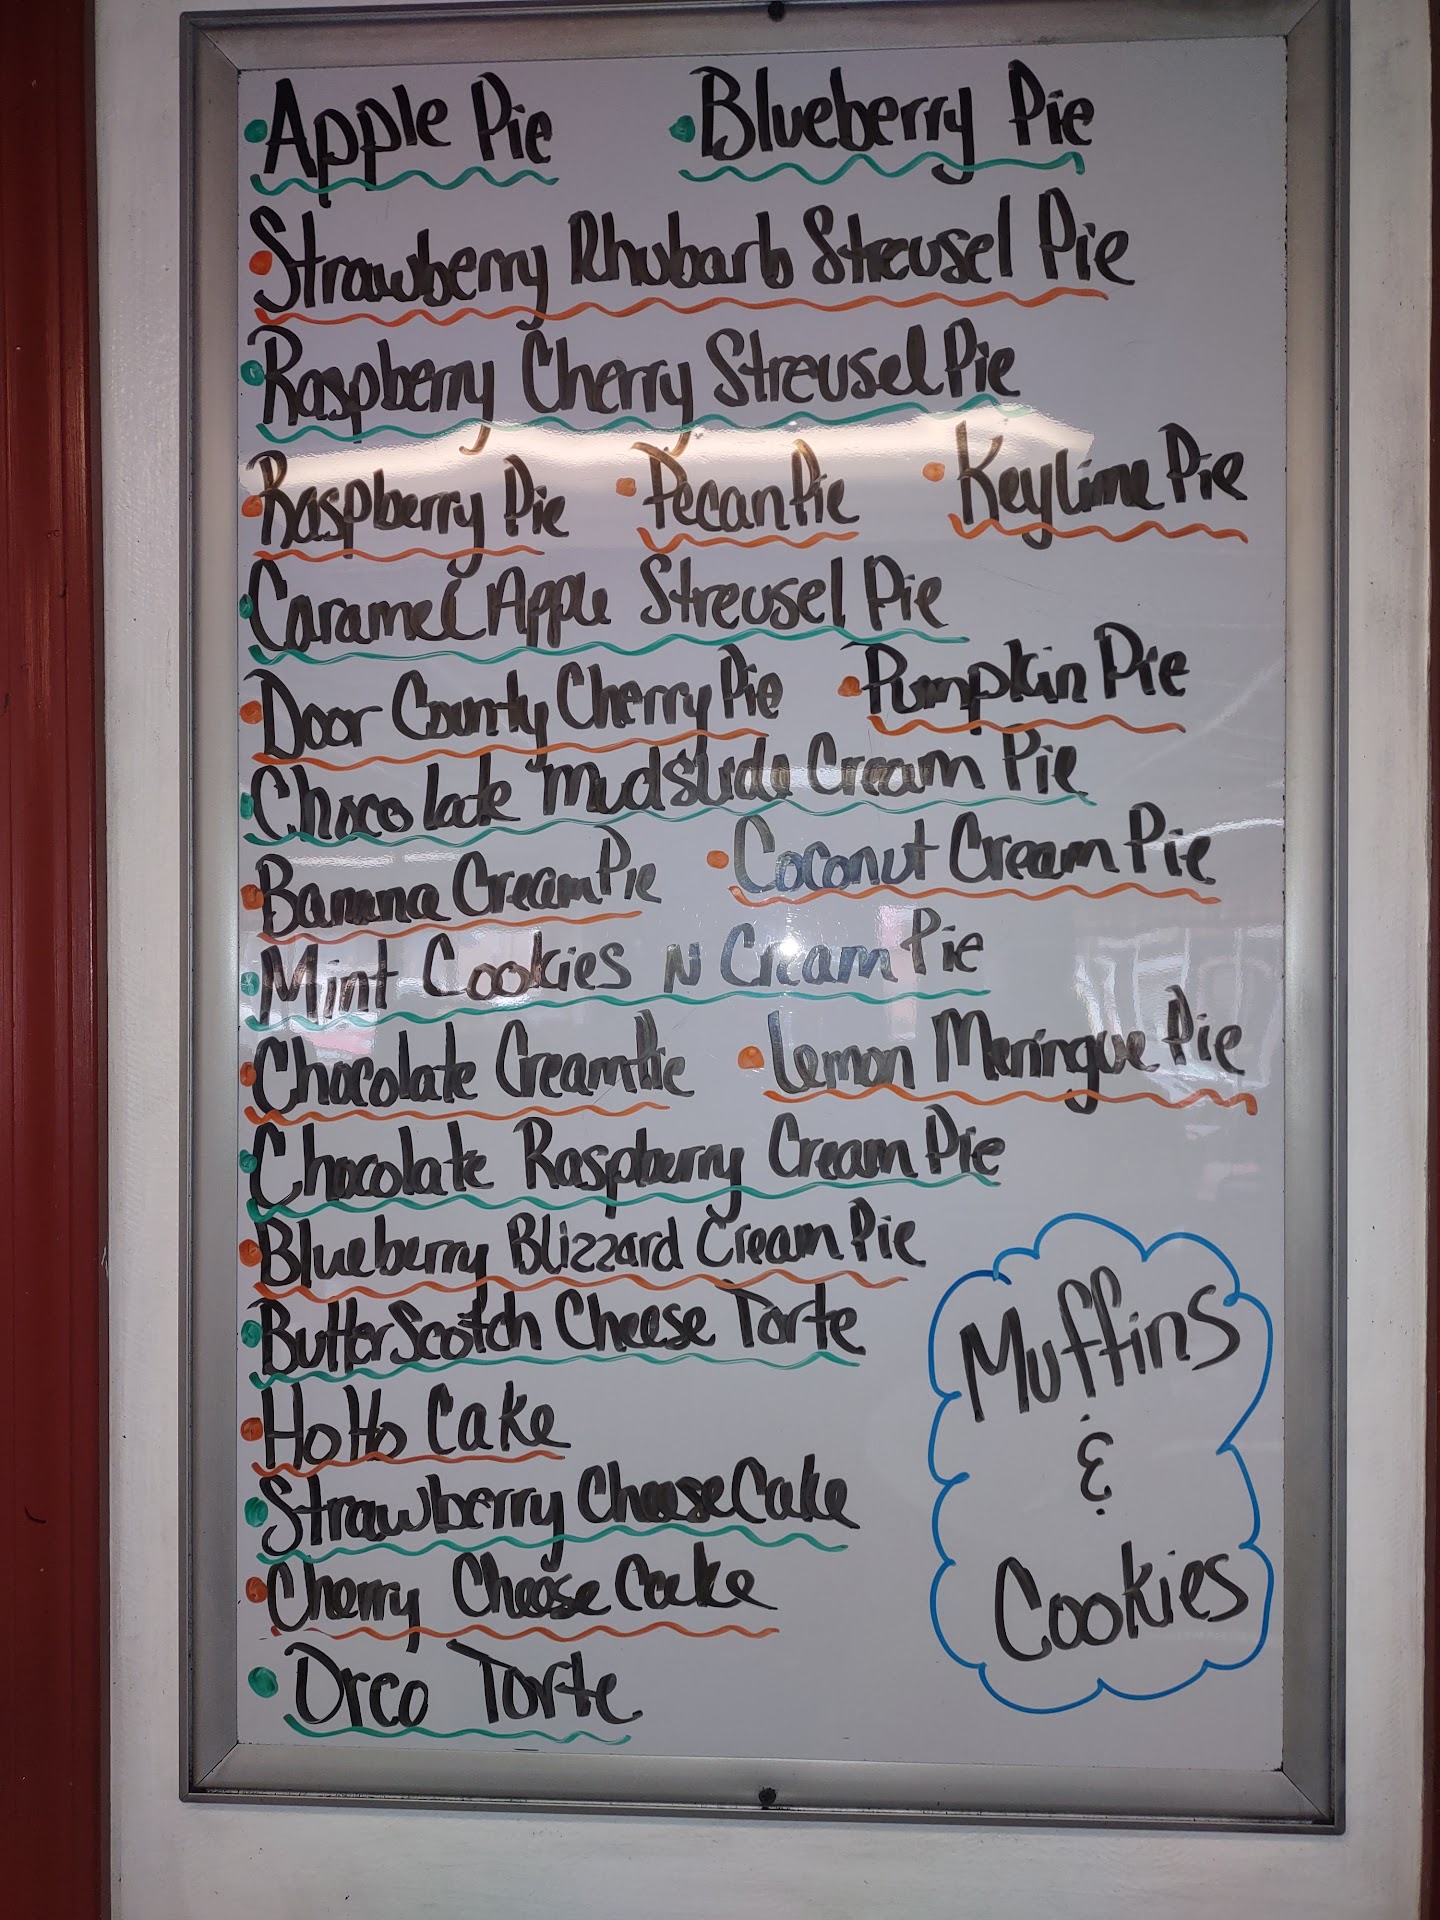 Apple Pie Blueberry Pie
Strawberry Rhubarb Streusel Pie
Raspberry Cherry Streusel Pie
Raspberry Pie Pecan Pie Keylime Pie
Caramel Apple Streusel Pie
Door County Cherry Pie Pumpkin Pie
Chocolate mudslide Cream Pie
Banana Cream Pie Coconut Cream Pie
Mint Cookies N Cream Pie
Chocolate Cream Pie Lemon Meringue Pie
Chocolate Raspberry Cream Pie
Blueberry Blizzard Cream Pie
ButterScotch Cheese Torte
HoHo Cake
Strawberry CheeseCake
Cherry Cheese Cake
Oreo Torte
Muffins
&
Cookies